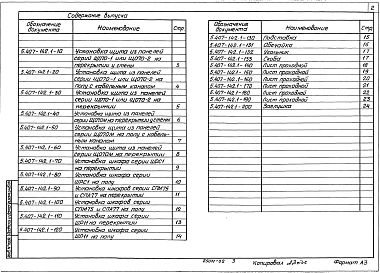 2
Содержание выпуска
Обозначение документа
Наименование
Стр
5.407-142.1-10
Установка щита из панелей
серии ЩО70-1 или ЩО70-2 на
перекрытии у стены
3
5.407-142.1-20
Установка щита из панелей
серии ЩО70-1 или ЩО70-2 на
полу с кабельным каналом
4
5.407-142.1-30
Установка щита из панелей
серии ЩО70-1 или ЩО70-2 на
перекрытии
5
5.407-142.1-40
Установка щита из панелей
серии ЩО70М на перекрытии у стены
6
5.407-142.1-50
Установка щита из панелей
серии ЩО70М на полу с кабель-
ным каналом
7
5.407-142.1-60
Установка щита из панелей
серии ЩО70М на перекрытии
8
5.407-142.1-70
Установка шкафа серии
на перекрытии
9
5.407-142.1-80
Установка шкафа серии
на полу
10
5.407-142.1-90
Установка шкафов серии СПМ75
и СПА77 на перекрытии
11
5.407-142.1-100
Установка шкафов серии
СПМ75 и СПА77 на полу
12
5.407-142.1-110
Установка шкафа серии
на перекрытии
13
5.407-142.1-120
Установка шкафа серии
на полу
14
Обозначение документа
Наименование
Стр
5.407-142.1-130
Подставка
15
5.407-142.1-131
16
5.407-142.1-132
Угольник
17
5.407-142.1-133
Скоба
17
5.407-142.1-140
Лист проходной
18
5.407-142.1-150
Лист проходной
19
5.407-142.1-160
Лист проходной
20
5.407-142.1-170
Лист проходной
21
5.407-142.1-180
Лист проходной
22
5.407-142.1-190
Лист проходной
23
5.407-142.1-200
Заглушка
24
3
Копировал
Формат А3